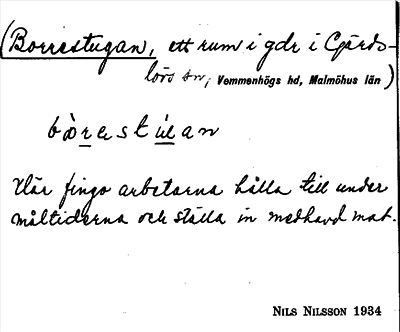 (Borrestugan, ett rum i gdr i Gärds-
lövs sn, Vemmenhögs hd, Malmöhus län)
bòrestúan
Här fingo arbetarna hålla till under
måltiderna och ställa in medhavd mat.
NILS NILSSON 1934